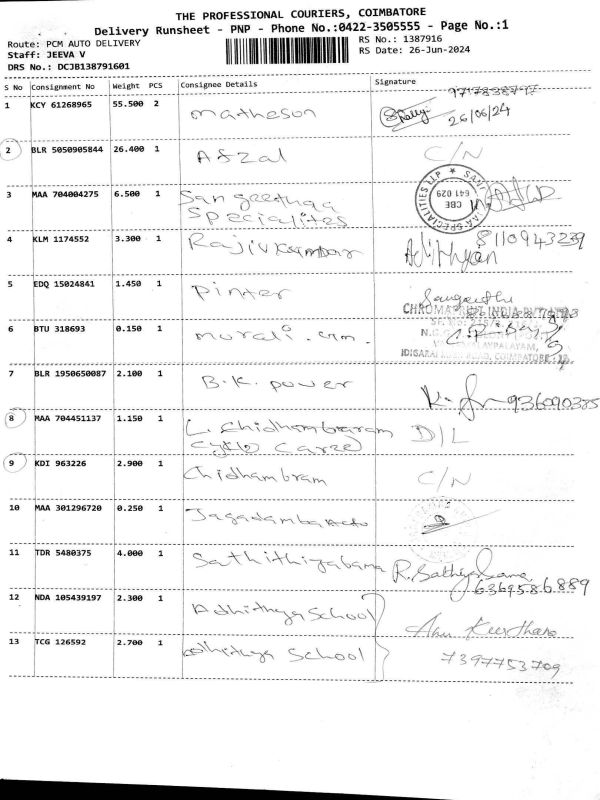 THE PROFESSIONAL COURIERS, COIMBATORE
Delivery Runsheet - PNP - Phone No.:0422-3505555 - Page No.:1
Route: PCM AUTO DELIVERY
RS No.: 1387916
Staff: JEEVA V
RS Date: 26-Jun-2024
DRS No.: DCJB138791601
S No Consignment No Weight PCS Consignee Details Signature
1 KCY 61268965 55.500 2 matheson
26/06/24
2 BLR 5050905844 26.400 1 Afzal C/N
3 MAA 704004275 6.500 1 Sangeethaa
Specialites
CBE 641 029
4 KLM 1174552 3.300 1 Rajivkumar Adithyan 8110943239
5 EDQ 15024841 1.450 1 Pinter
6 BTU 318693 0.150 1 murali.
7 BLR 1950650087 2.100 1 B.K. power
8 MAA 704451137 1.150 1 L. Chidhambraram D/L
9 KDI 963226 2.900 1 Chidhambram C/N
10 MAA 301296720 0.250 1 Jagadamba Auto
11 TDR 5480375 4.000 1 Sathithiyabama R. Sathiyabama
6369586889
12 NDA 105439197 2.300 1 Adhithya School
13 TCG 126592 2.700 1 adhithya School 7397753709